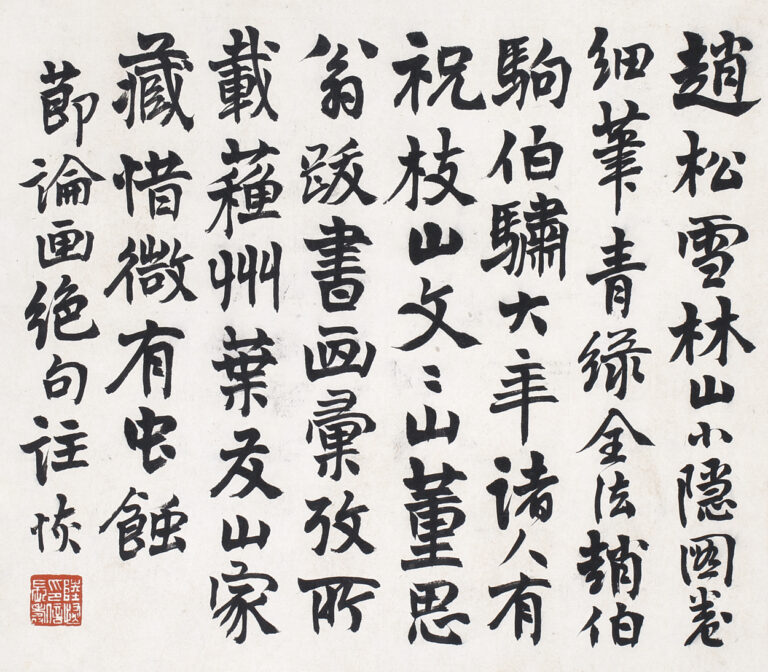 趙松雪林山小隱圖卷
細筆青綠全法趙伯
駒伯驌大年諸人有
祝枝山文〻山董思
翁跋書画彙攷所
載蘓州葉友山家
藏惜微有虫蝕
莭論画絶句註恢